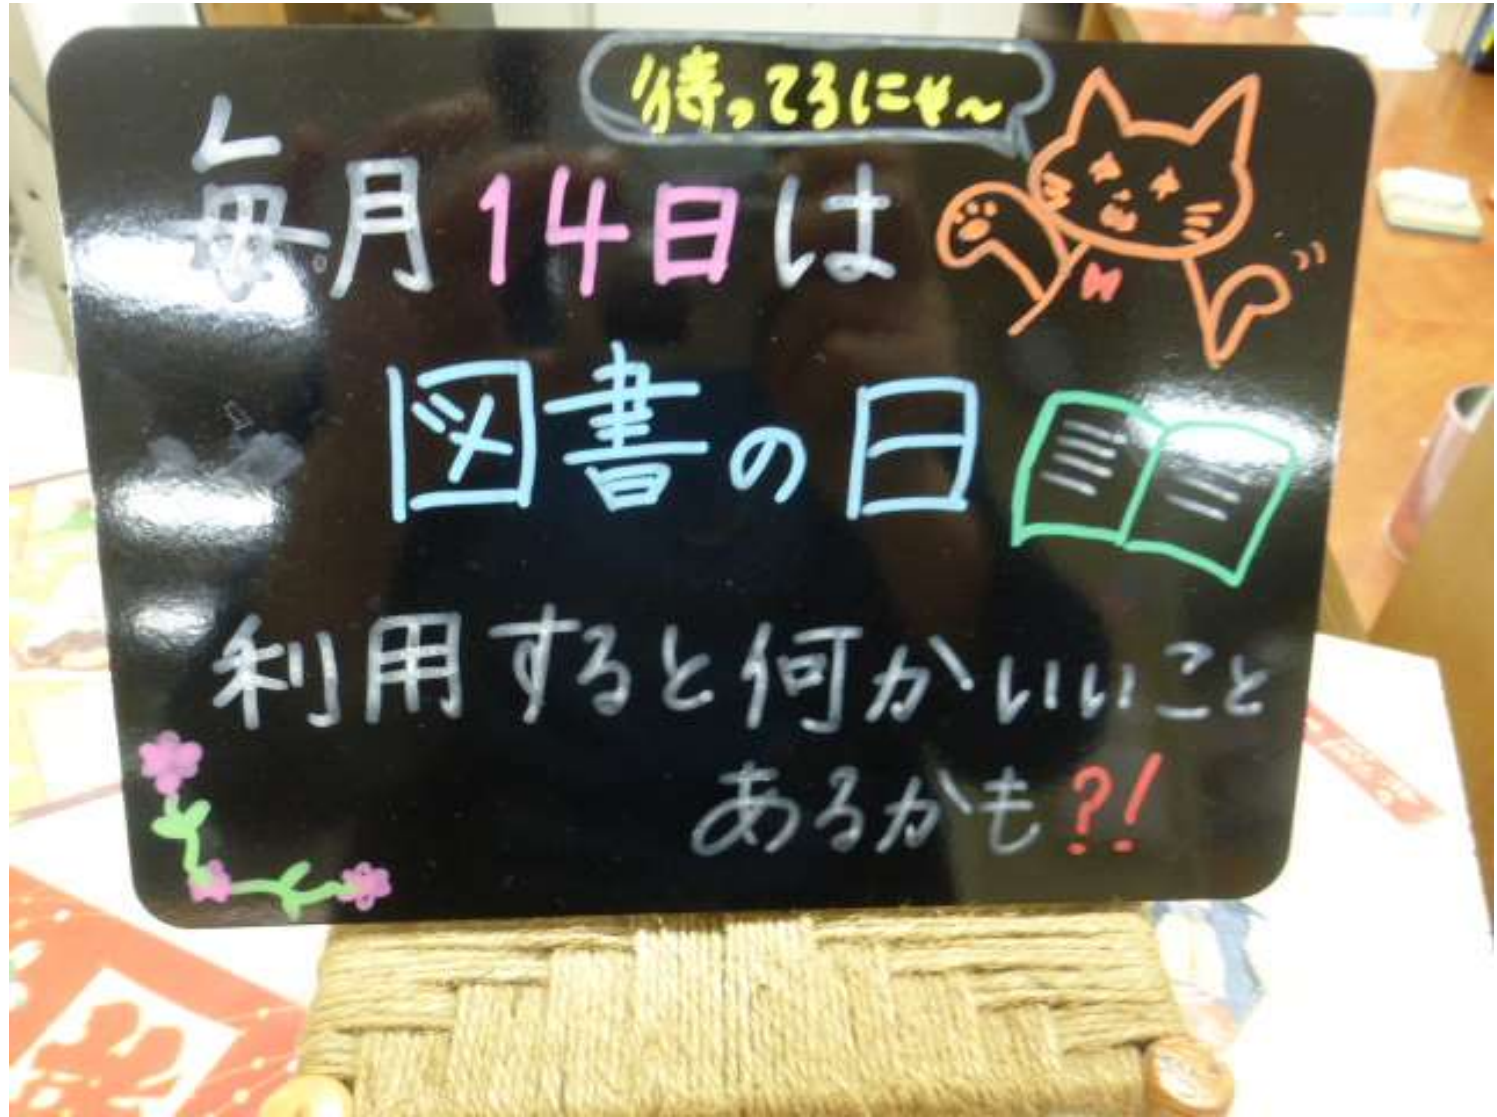 待ってるにゃ～
毎月14日は
図書の日
利用すると何かいいこと
あるかも?!